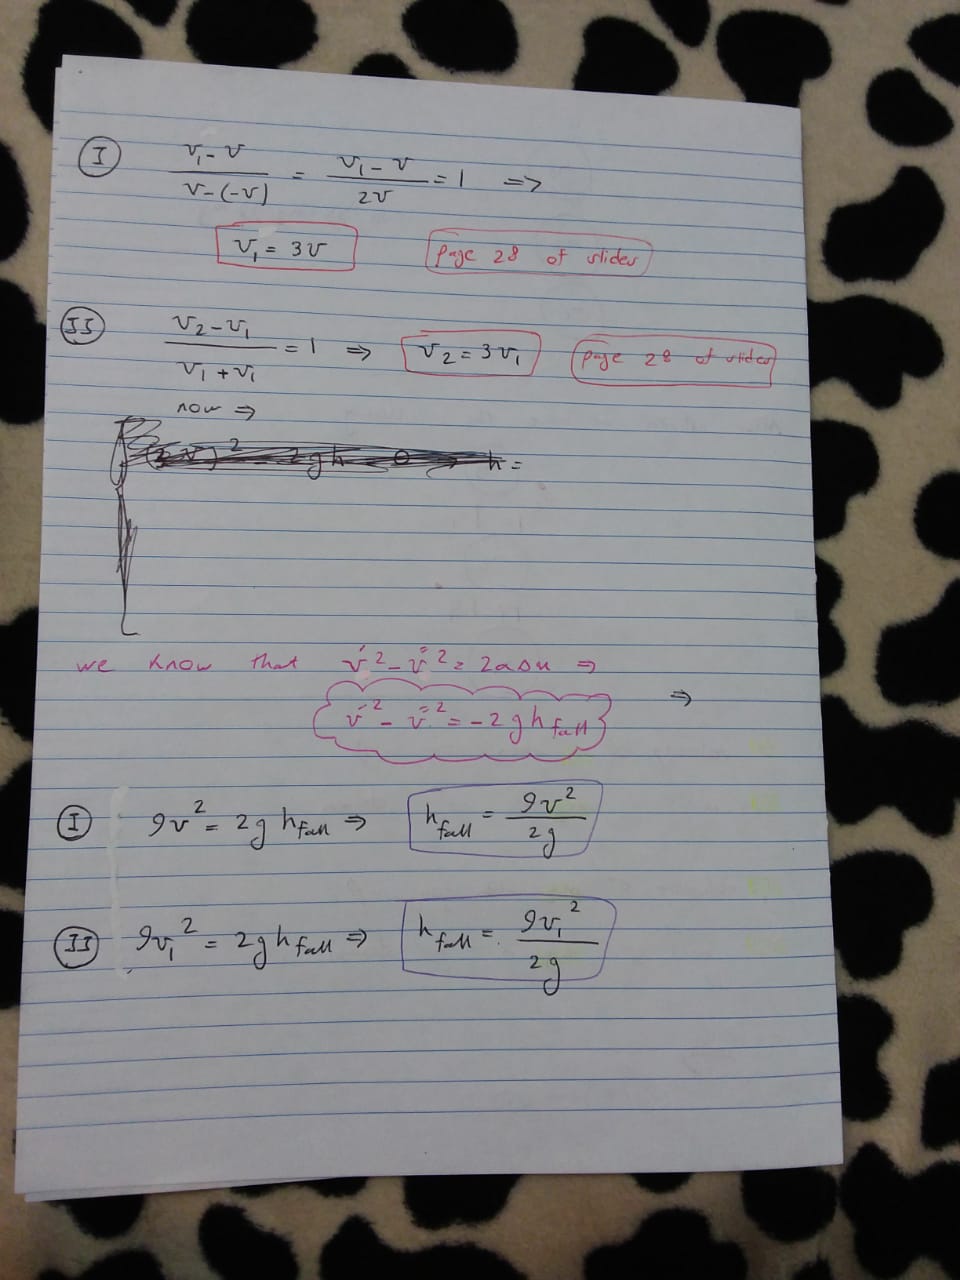 I (v₁ - v)/(v-(-v)) = (v₁ - v)/(2v) = 1 ⇒
v₁ = 3v page 28 of slides
II (v₂ - v₁)/(v₁ + v₁) = 1 ⇒ v₂ = 3v₁ page 28 of slides
now ⇒
h =
we know that v́² - v̋² = 2aΔx ⇒
v́² - v̋² = -2gh fall ⇒
I 9v² = 2g h fall ⇒ h fall = 9v²/2g
II 9v₁² = 2g h fall ⇒ h fall = 9v₁²/2g